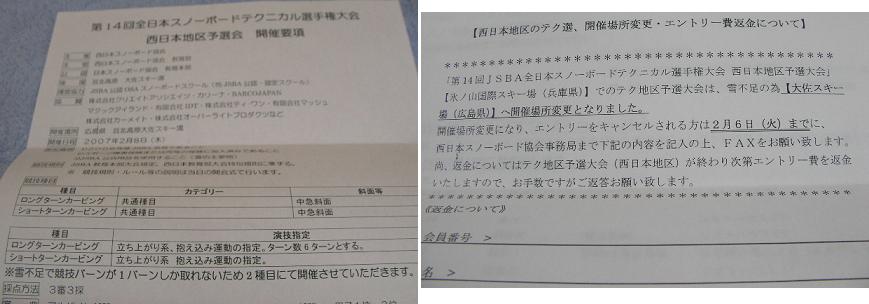 第14回全日本スノーボードテクニカル選手権大会
西日本地区予選会 開催要項
主 催 西日本スノーボード協会
西日本スノーボード協会 教育部
日本スノーボード協会 教育本部
芸北高原 大佐スキー場
JSBA公認 OSAスノーボードスクール (他 JSBA公認・認定スクール)
協 賛 株式会社クリエイトアソシエイツ・カリーナ・BARCOJAPAN
マジックアイランド・有限会社IDT・株式会社ティ・ワン・有限会社マッシュ
株式会社カーメイト・株式会社オーバーライトプロダクツなど
開催場所 広島県 芸北高原大佐スキー場
開催日程 2007年2月8日(木)
※ 競技規則・ルール等の説明は当日の開会式で行います。
競技種目
種目 カテゴリー 斜面等
ロングターンカービング 共通種目 中急斜面
ショートターンカービング 共通種目 中急斜面
種目 演技指定
ロングターンカービング 立ち上がり系、抱え込み運動の指定。ターン数6ターンとする。
ショートターンカービング 立ち上がり系、抱え込み運動の指定。
※雪不足で競技バーンが1バーンしか取れないため2種目にて開催させていただきます。
採点方法 3審3採
【西日本地区のテク選、開催場所変更・エントリー費返金について】
「第14回JSBA全日本スノーボードテクニカル選手権大会 西日本地区予選大会」
【氷ノ山国際スキー場(兵庫県)】でのテク地区予選大会は、雪不足の為【大佐スキー
場(広島県)】へ開催場所変更となりました。
開催場所変更になり、エントリーをキャンセルされる方は2月6日(火)までに、
西日本スノーボード協会事務局まで下記の内容を記入の上、FAXをお願い致します。
尚、返金についてはテク地区予選大会(西日本地区)が終わり次第エントリー費を返金
いたしますので、お手数ですがご返答お願い致します。
《返金について》
会員番号 >
名 >